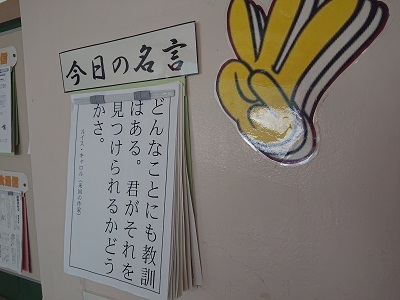 今日の名言
どんなことにも教訓
はある。君がそれを
見つけられるかどう
かさ。
ルイス・キャロル（英国の作家）